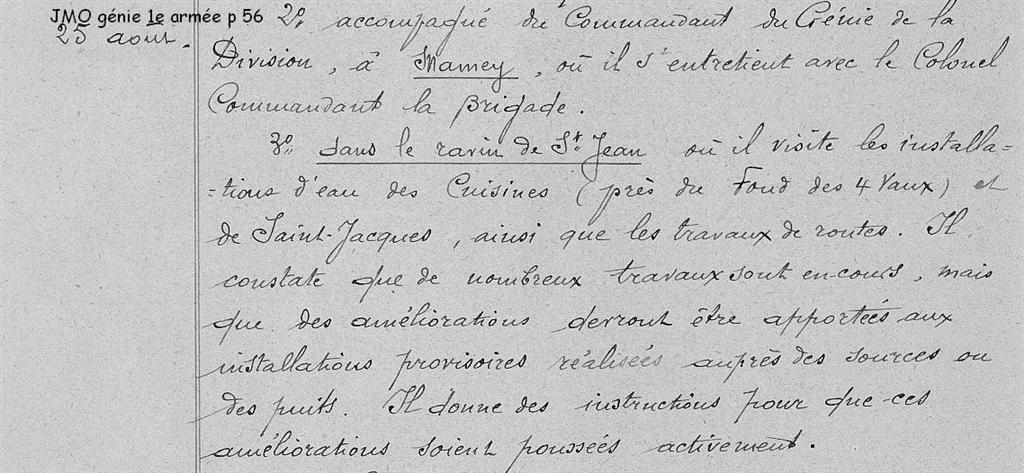 JMO génie 1e armée p 56
25 août.
2º accompagné du Commandant du Génie de la
Division, à Mamey, où il s'entretient avec le Colonel
Commandant la Brigade.
3º dans le ravin de St Jean où il visite les installa=
=tions d'eau des Cuisines (près du Fond des 4 Vaux) et
de Saint-Jacques, ainsi que les travaux de routes. Il
constate que de nombreux travaux sont en cours, mais
que des améliorations devront être apportées aux
installations provisoires réalisées auprès des sources ou
des puits. Il donne des instructions pour que ces
améliorations soient poussées activement.